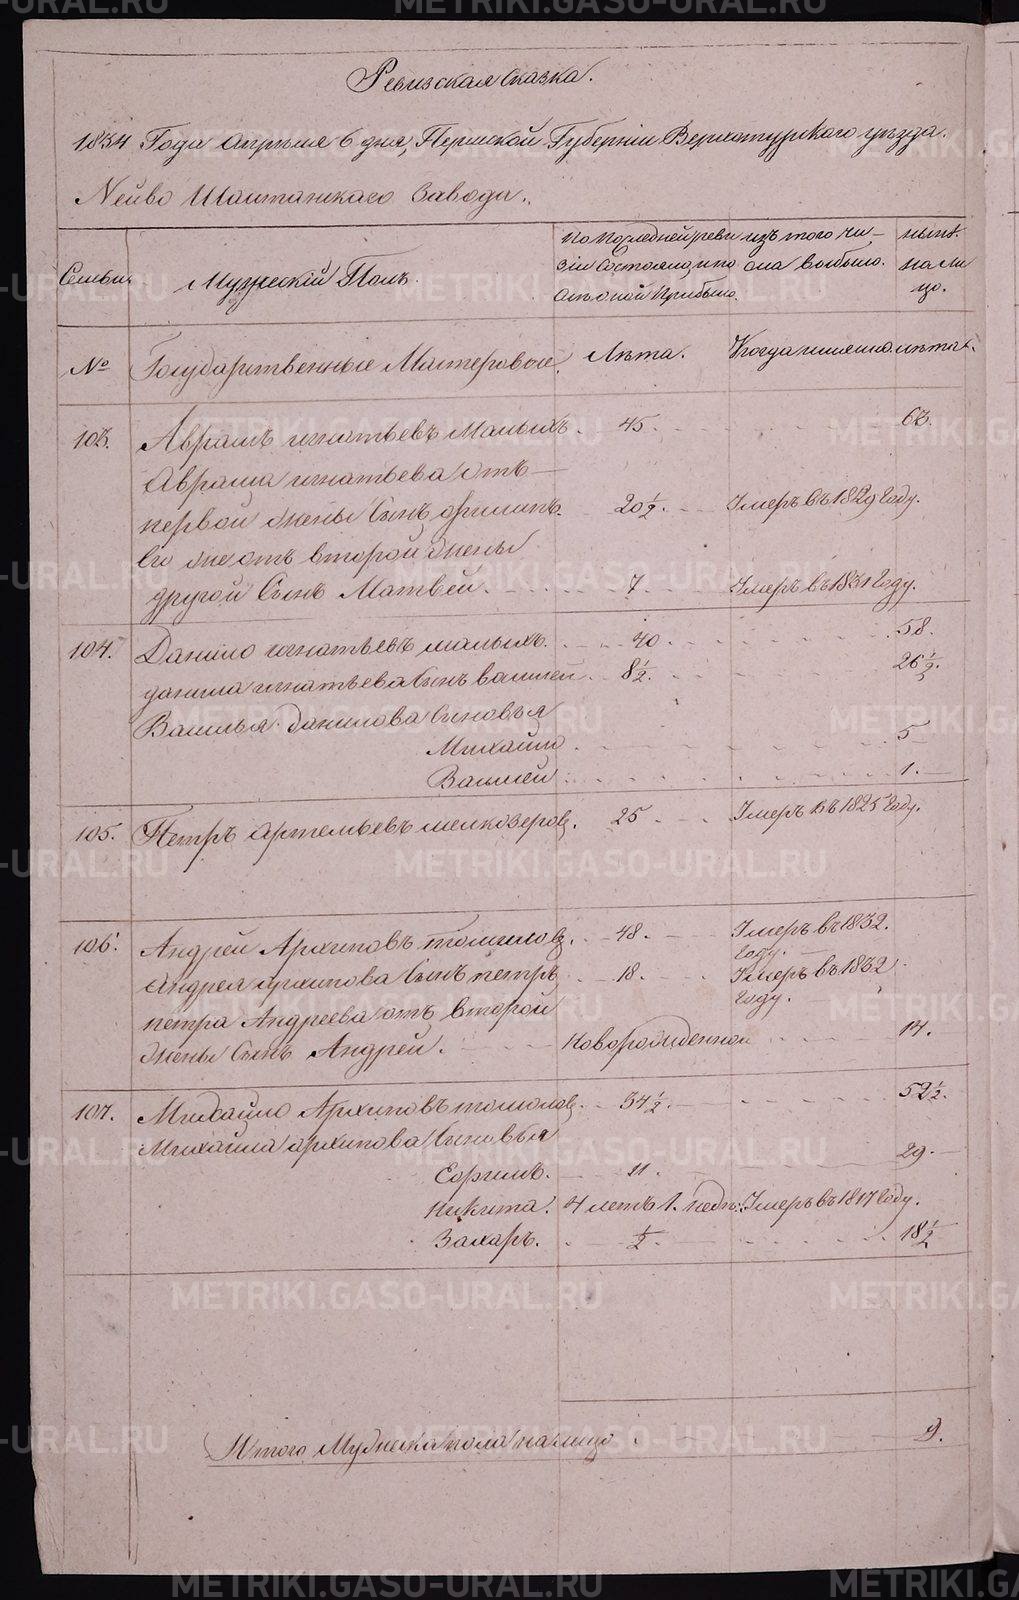 Ревизская Сказка.
1834 Года апреля 6 дня, Пермской Губерніи Верхотурского уезда.
Нейво Шайтанскаго Завода.
Семьи. Мужескій Полъ По Последней реви зіи Состояло, и по Онъ оной Прибыло. изъ того чи- сла выбыло. ныне на ли цо.
№ Государственные Мастеровые. Лѣта. Когда именно. лѣта.
103. Авраамъ игнатьевъ Малыхъ. 45. 63.
Авраама игнатьева отъ
первой жены Сынъ 20 ½. Умеръ въ 1829 Году.
его же отъ второй жены
другой Сынъ Матвей. 7. Умеръ въ 1831 Году.
104. Данило игнатьевъ малыхъ. 40. 58.
данила игнатьева Сынъ василей. 8 ½. 26 ½.
Василья данилова Сыновья
Михайло. 5
Василей. 1.
105. Петръ артемьевъ мелкозеровъ. 25 Умеръ въ 1825 Году.
106. Андрей Архиповъ 48. Умеръ въ 1832. Году.
Андрея архипова Сынъ петръ 18. Умеръ въ 1832 Году.
петра Андреева отъ второй
жены Сынъ Андрей. Новорожденной 14.
107. Михайло Архиповъ 34 ½. 52 ½.
Михайла архипова Сыновья
11. 29.
Никита. 4 летъ 1. неде. Умеръ въ 1817 Году.
Захаръ. ½. 18 ½
Итого Мужеска пола налицо 9.
METRIKI.GASO-URAL.RU